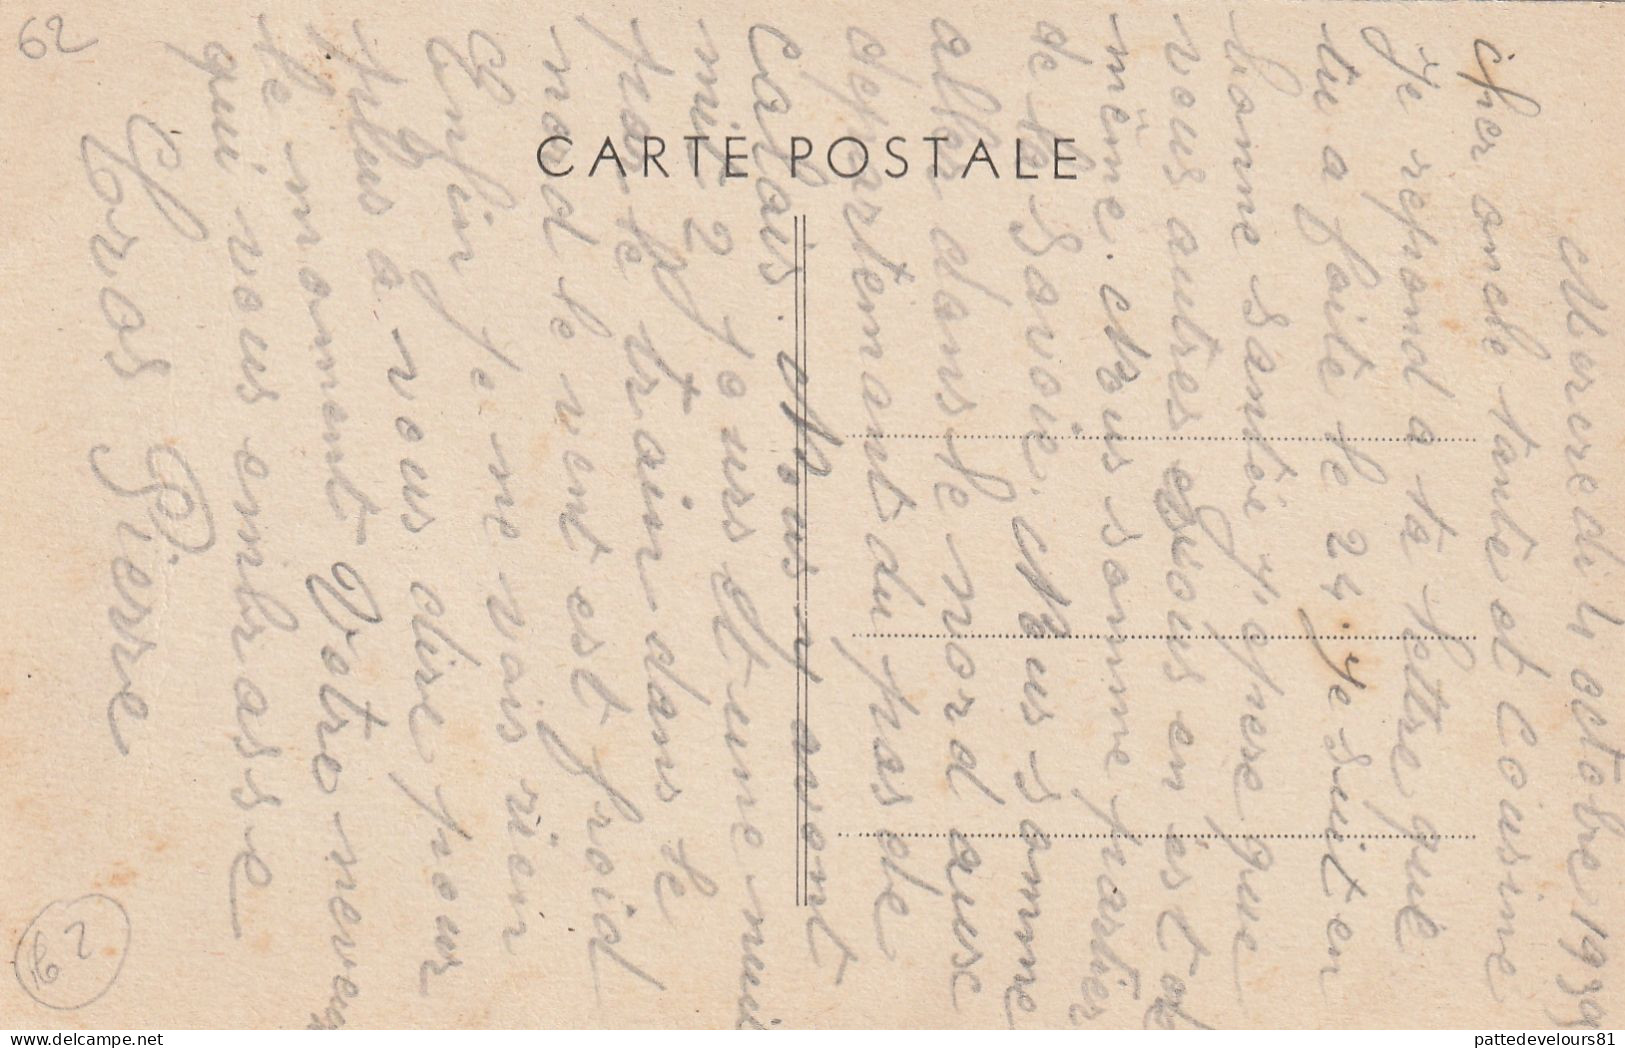 62
CARTE POSTALE
Mercredi 4 octobre 1939
Cher oncle tante et Cousine
Je repond a ta lettre que
tu a faite le 24. Je suit en
bonne santé j'espere que
vous autres est de
même. Nous somme partier
de la Savoie. Nous somme
aller dans le nord ausc
departemant du pas de
Calais. Nous y avont
mit 2 jours et une nuit
pas le train dans le
nord le vent est froid
Enfin je ne vais rien
plus a vous dire pour
le moment Votre neveu
qui vous embrasse
Gros Pierre
62
pattedevelours81